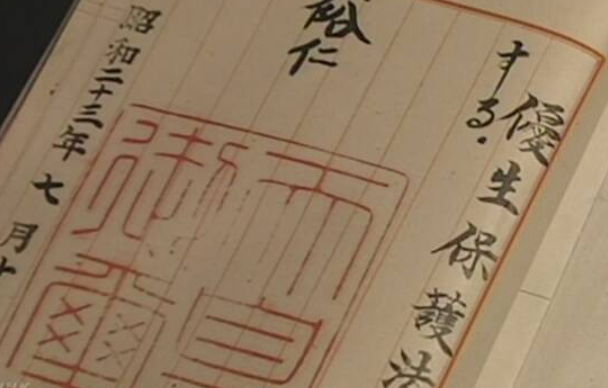 優生保護法
する。
裕仁
天皇
御璽
昭和二十三年七月十